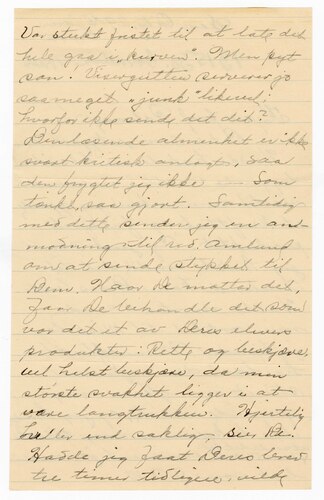 Var sterkt fristet til at late det
hele gaa i „kurven". Men pyt
san. Visergutten serverer jo
saa meget „junk" likevel:
hvorfor ikke sende det dit?
Den læsende almenhet er ikke
svært kritisk anlagt, saa
den frygter jeg ikke — Som
tænkt, saa gjort. Samtidig
med dette sender jeg en an-
modning til red. Amlund
om at sende stykket til
Dem. Naar De mottar det,
faar De behandle det som
var det et av Deres elevers
produkter: Rette og beskjære,
vel helst beskjære, da min
største svakhet ligger i at
være langtrukken. Hjertelig
heller end saklig, sier De.
Hadde jeg faat Deres brev
tre timer tidligere, vilde